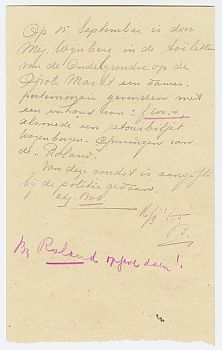 Op 15 September is door
Mej. Wijnberg in de toiletten
van de Ondergrondse op de
Grote Markt een dames-
portemonaie gevonden met
een inhoud van: f
alsmede een retourbiljet
van de "Roland.
Van deze vondst is aangifte
bij de politie gedaan.
Bij Roland opgave doen!